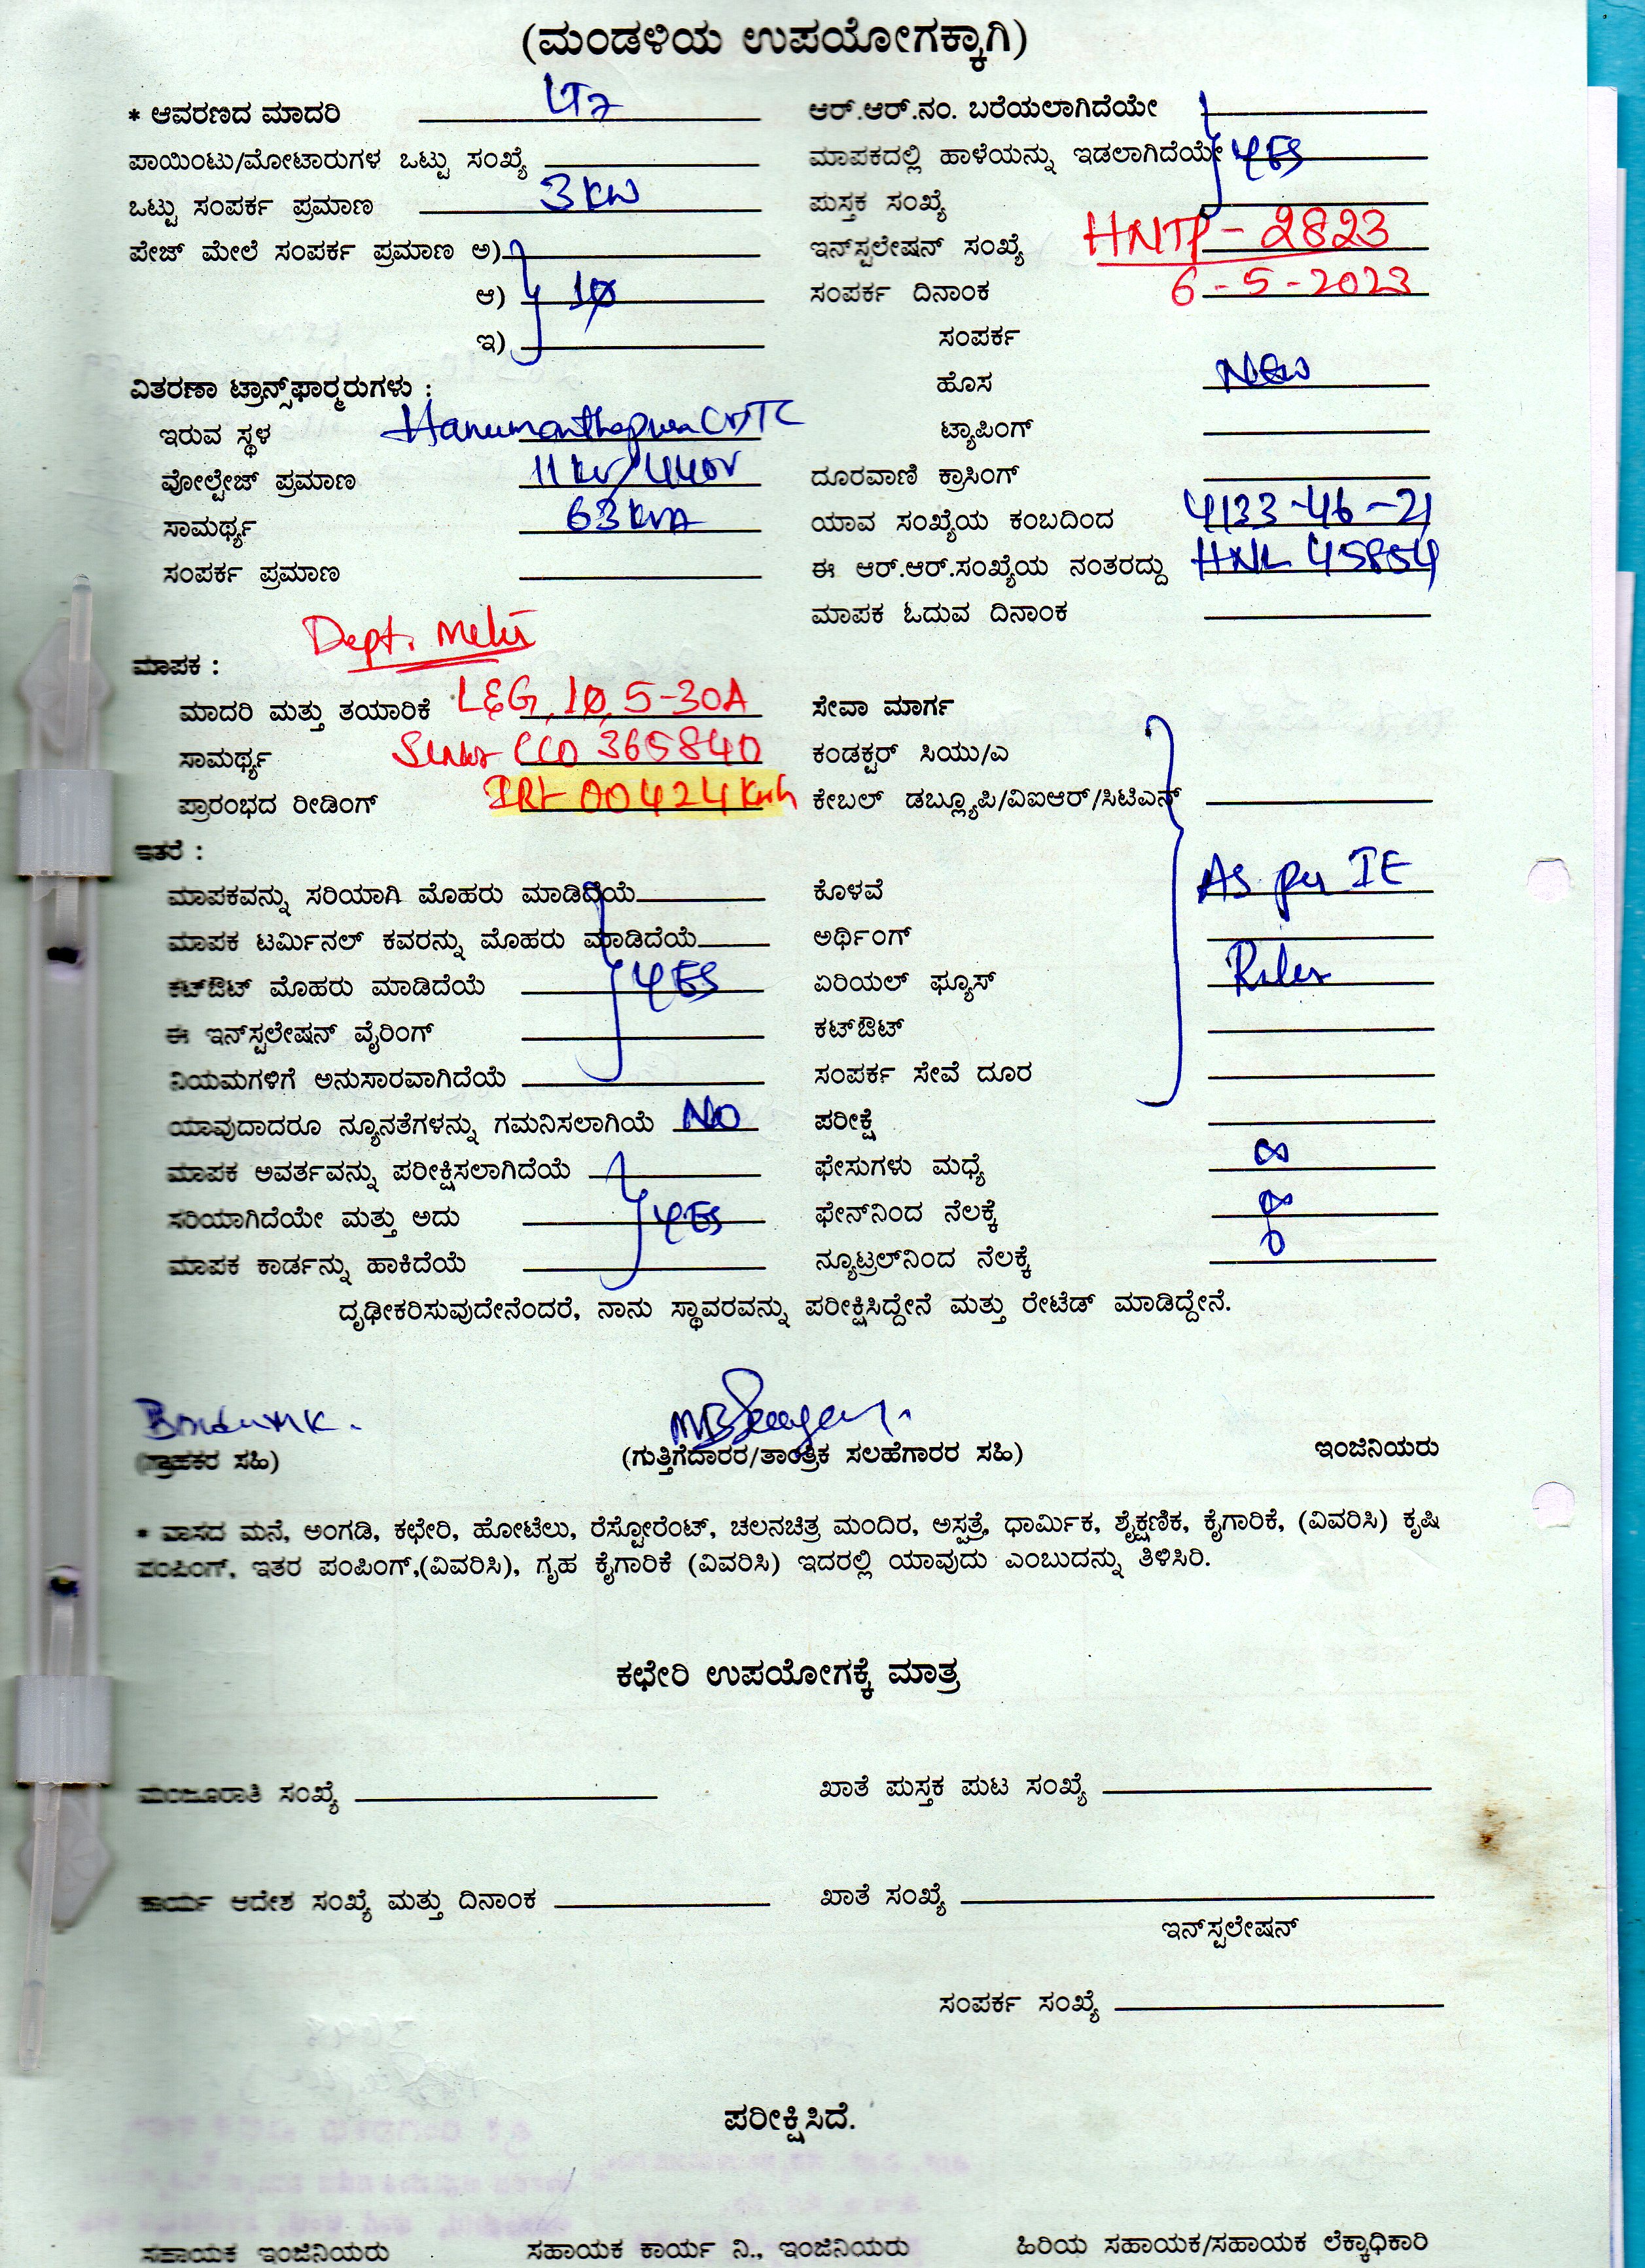 (ಮಂಡಳಿಯ ಉಪಯೋಗಕ್ಕಾಗಿ)
* ಆವರಣದ ಮಾದರಿ LT7
ಪಾಯಿಂಟು/ಮೋಟಾರುಗಳ ಒಟ್ಟು ಸಂಖ್ಯೆ
ಒಟ್ಟು ಸಂಪರ್ಕ ಪ್ರಮಾಣ 3 KW
ಪೇಜ್ ಮೇಲೆ ಸಂಪರ್ಕ ಪ್ರಮಾಣ ಅ)
ಆ) 1ø
ಇ)
ವಿತರಣಾ ಟ್ರಾನ್ಸ್‌ಫಾರ್ಮರುಗಳು :
ಇರುವ ಸ್ಥಳ
ವೋಲ್ಟೇಜ್ ಪ್ರಮಾಣ 11 KV/440V
ಸಾಮರ್ಥ್ಯ 63 KVA
ಸಂಪರ್ಕ ಪ್ರಮಾಣ
ಆರ್.ಆರ್.ನಂ. ಬರೆಯಲಾಗಿದೆಯೇ
ಮಾಪಕದಲ್ಲಿ ಹಾಳೆಯನ್ನು ಇಡಲಾಗಿದೆಯೇ YES
ಪುಸ್ತಕ ಸಂಖ್ಯೆ
ಇನ್‌ಸ್ಟಲೇಷನ್ ಸಂಖ್ಯೆ HNTP - 2823
ಸಂಪರ್ಕ ದಿನಾಂಕ 6 - 5 - 2023
ಸಂಪರ್ಕ
ಹೊಸ New
ಟ್ಯಾಪಿಂಗ್
ದೂರವಾಣಿ ಕ್ರಾಸಿಂಗ್
ಯಾವ ಸಂಖ್ಯೆಯ ಕಂಬದಿಂದ 4133-46-21
ಈ ಆರ್.ಆರ್.ಸಂಖ್ಯೆಯ ನಂತರದ್ದು HNL 45854
ಮಾಪಕ ಓದುವ ದಿನಾಂಕ
Dept. Meter
ಮಾಪಕ :
ಮಾದರಿ ಮತ್ತು ತಯಾರಿಕೆ L&G, 1ø, 5-30A
ಸಾಮರ್ಥ್ಯ 365840
ಪ್ರಾರಂಭದ ರೀಡಿಂಗ್ 00424 Kwh
ಇತರೆ :
ಮಾಪಕವನ್ನು ಸರಿಯಾಗಿ ಮೊಹರು ಮಾಡಿದೆಯೆ
ಮಾಪಕ ಟರ್ಮಿನಲ್ ಕವರನ್ನು ಮೊಹರು ಮಾಡಿದೆಯೆ
ಕಟ್‌ಔಟ್ ಮೊಹರು ಮಾಡಿದೆಯೆ YES
ಈ ಇನ್‌ಸ್ಟಲೇಷನ್ ವೈರಿಂಗ್
ನಿಯಮಗಳಿಗೆ ಅನುಸಾರವಾಗಿದೆಯೆ
ಯಾವುದಾದರೂ ನ್ಯೂನತೆಗಳನ್ನು ಗಮನಿಸಲಾಗಿಯೆ NO
ಮಾಪಕ ಅವರ್ತವನ್ನು ಪರೀಕ್ಷಿಸಲಾಗಿದೆಯೆ
ಸರಿಯಾಗಿದೆಯೇ ಮತ್ತು ಅದು YES
ಮಾಪಕ ಕಾರ್ಡನ್ನು ಹಾಕಿದೆಯೆ
ಸೇವಾ ಮಾರ್ಗ
ಕಂಡಕ್ಟರ್ ಸಿಯು/ಎ
ಕೇಬಲ್ ಡಬ್ಲ್ಯೂಪಿ/ವಿಐಆರ್/ಸಿಟಿಎಸ್
ಕೊಳವೆ As per IE
ಅರ್ಥಿಂಗ್
ಏರಿಯಲ್ ಫ್ಯೂಸ್ Rules
ಕಟ್‌ಔಟ್
ಸಂಪರ್ಕ ಸೇವೆ ದೂರ
ಪರೀಕ್ಷೆ
ಫೇಸುಗಳು ಮಧ್ಯೆ ∞
ಫೇನ್‌ನಿಂದ ನೆಲಕ್ಕೆ ∞
ನ್ಯೂಟ್ರಲ್‌ನಿಂದ ನೆಲಕ್ಕೆ 0
ದೃಢೀಕರಿಸುವುದೇನೆಂದರೆ, ನಾನು ಸ್ಥಾವರವನ್ನು ಪರೀಕ್ಷಿಸಿದ್ದೇನೆ ಮತ್ತು ರೇಟೆಡ್ ಮಾಡಿದ್ದೇನೆ.
(ಗ್ರಾಹಕರ ಸಹಿ) (ಗುತ್ತಿಗೆದಾರರ/ತಾಂತ್ರಿಕ ಸಲಹೆಗಾರರ ಸಹಿ) ಇಂಜಿನಿಯರು
* ವಾಸದ ಮನೆ, ಅಂಗಡಿ, ಕಛೇರಿ, ಹೋಟೆಲು, ರೆಸ್ಟೋರೆಂಟ್, ಚಲನಚಿತ್ರ ಮಂದಿರ, ಅಸ್ಪತ್ರೆ, ಧಾರ್ಮಿಕ, ಶೈಕ್ಷಣಿಕ, ಕೈಗಾರಿಕೆ, (ವಿವರಿಸಿ) ಕೃಷಿ
ಪಂಪಿಂಗ್, ಇತರ ಪಂಪಿಂಗ್,(ವಿವರಿಸಿ), ಗೃಹ ಕೈಗಾರಿಕೆ (ವಿವರಿಸಿ) ಇದರಲ್ಲಿ ಯಾವುದು ಎಂಬುದನ್ನು ತಿಳಿಸಿರಿ.
ಕಛೇರಿ ಉಪಯೋಗಕ್ಕೆ ಮಾತ್ರ
ಮಂಜೂರಾತಿ ಸಂಖ್ಯೆ ಖಾತೆ ಪುಸ್ತಕ ಪುಟ ಸಂಖ್ಯೆ
ಕಾರ್ಯ ಆದೇಶ ಸಂಖ್ಯೆ ಮತ್ತು ದಿನಾಂಕ ಖಾತೆ ಸಂಖ್ಯೆ
ಇನ್‌ಸ್ಟಲೇಷನ್
ಸಂಪರ್ಕ ಸಂಖ್ಯೆ
ಪರೀಕ್ಷಿಸಿದೆ.
ಸಹಾಯಕ ಇಂಜಿನಿಯರು ಸಹಾಯಕ ಕಾರ್ಯ ನಿ., ಇಂಜಿನಿಯರು ಹಿರಿಯ ಸಹಾಯಕ/ಸಹಾಯಕ ಲೆಕ್ಕಾಧಿಕಾರಿ